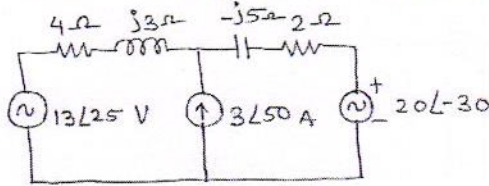 4Ω j3Ω -j5Ω 2Ω
13∠25 V 3∠50 A + - 20∠-30